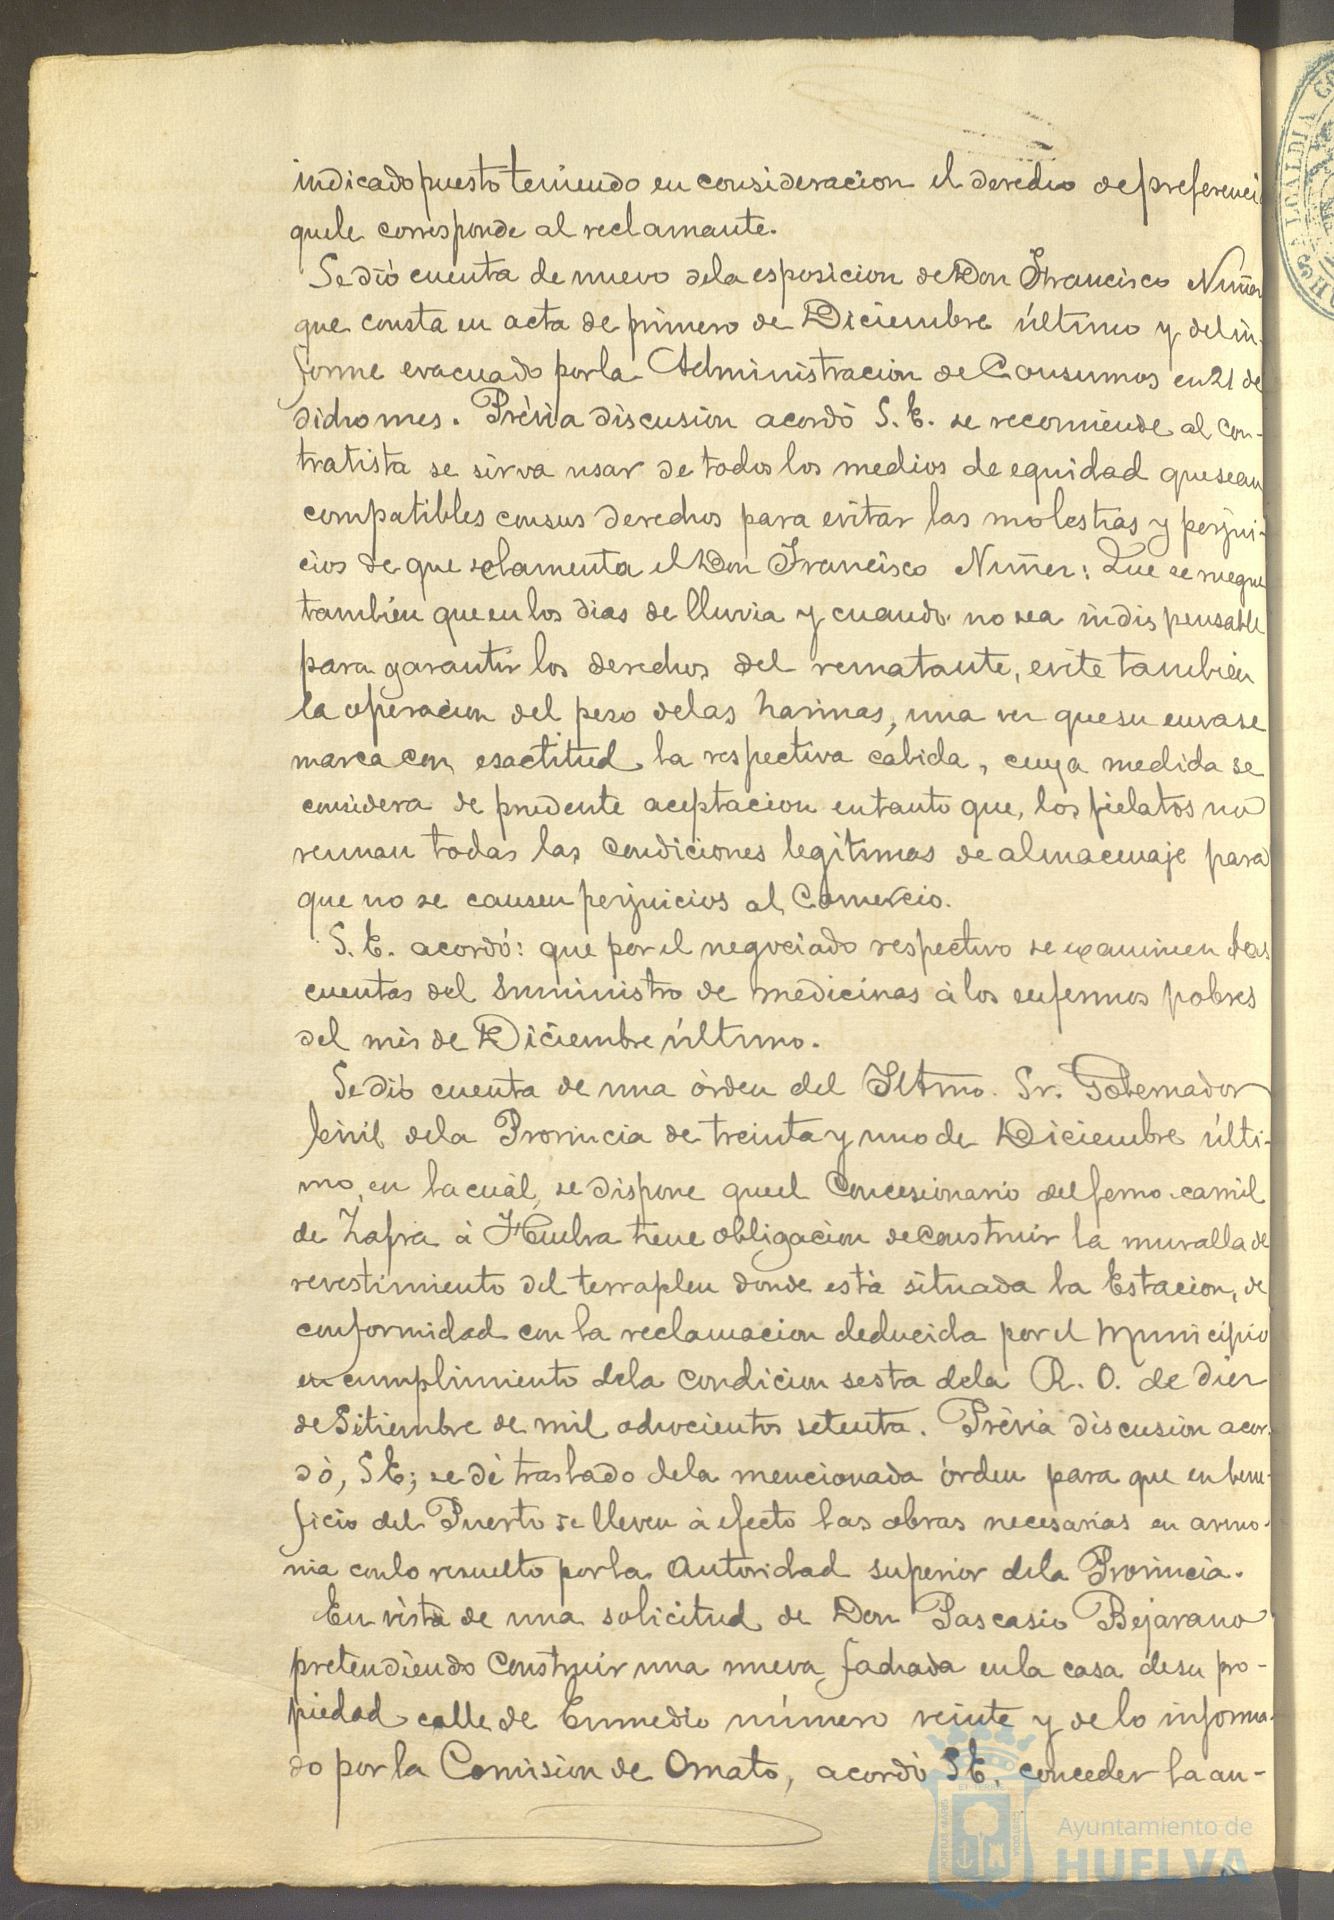 indicado puesto teniendo en consideracion el derecho de preferenci
que le corresponde al reclamante.
Se dió cuenta de nuevo de la esposicion de Don Francisco Nuñez
que consta en acta de primero de Diciembre último y del in-
forme evacuado por la Administracion de Consumos en 21 de
dicho mes. Prévia discusion acordó S. E. se recomiende al con-
tratista se sirva usar de todos los medios de equidad que sean
compatibles con sus derechos para evitar las molestias y perjui-
cios de que se lamenta el Don Francisco Nuñez: Que se ruegue
tambien que en los dias de lluvia y cuando no sea indispensable
para garantir los derechos del rematante, evite tambien
la operacion del peso de las harinas, una vez que su envase
marca con esactitud la respectiva cabida, cuya medida se
considera de prudente aceptacion en tanto que, los fielatos no
reunan todas las condiciones legítimas de almacenaje para
que no se causen perjuicios al Comercio.
S. E. acordó: que por el negociado respectivo se examinen las
cuentas del suministro de medicinas á los enfermos pobres
del mes de Diciembre último.
Se dió cuenta de una órden del Iltmo. Sr. Gobernador
Civil de la Provincia de treinta y uno de Diciembre últi-
mo, en la cuál, se dispone que el Concesionario del ferro-carril
de Zafra á Huelva tiene obligacion de construir la muralla de
revestimiento del terraplen donde está situada la Estacion, de
conformidad con la reclamacion deducida por el Municipio
en cumplimiento de la condicion sesta de la R. O. de diez
de Setiembre de mil ochocientos setenta. Prévia discusion acor-
dó, S E; se dé traslado de la mencionada órden para que en bene-
ficio del Puerto se lleven á efecto las obras necesarias en armo-
nia con lo resuelto por la Autoridad superior de la Provincia.
En vista de una solicitud de Don Pascasio Bejarano
pretendiendo construir una nueva fachada en la casa de su pro-
piedad calle de Enmedio número veinte y de lo informa-
do por la Comision de Ornato, acordó S E. conceder la au-
Ayuntamiento de
HUELVA